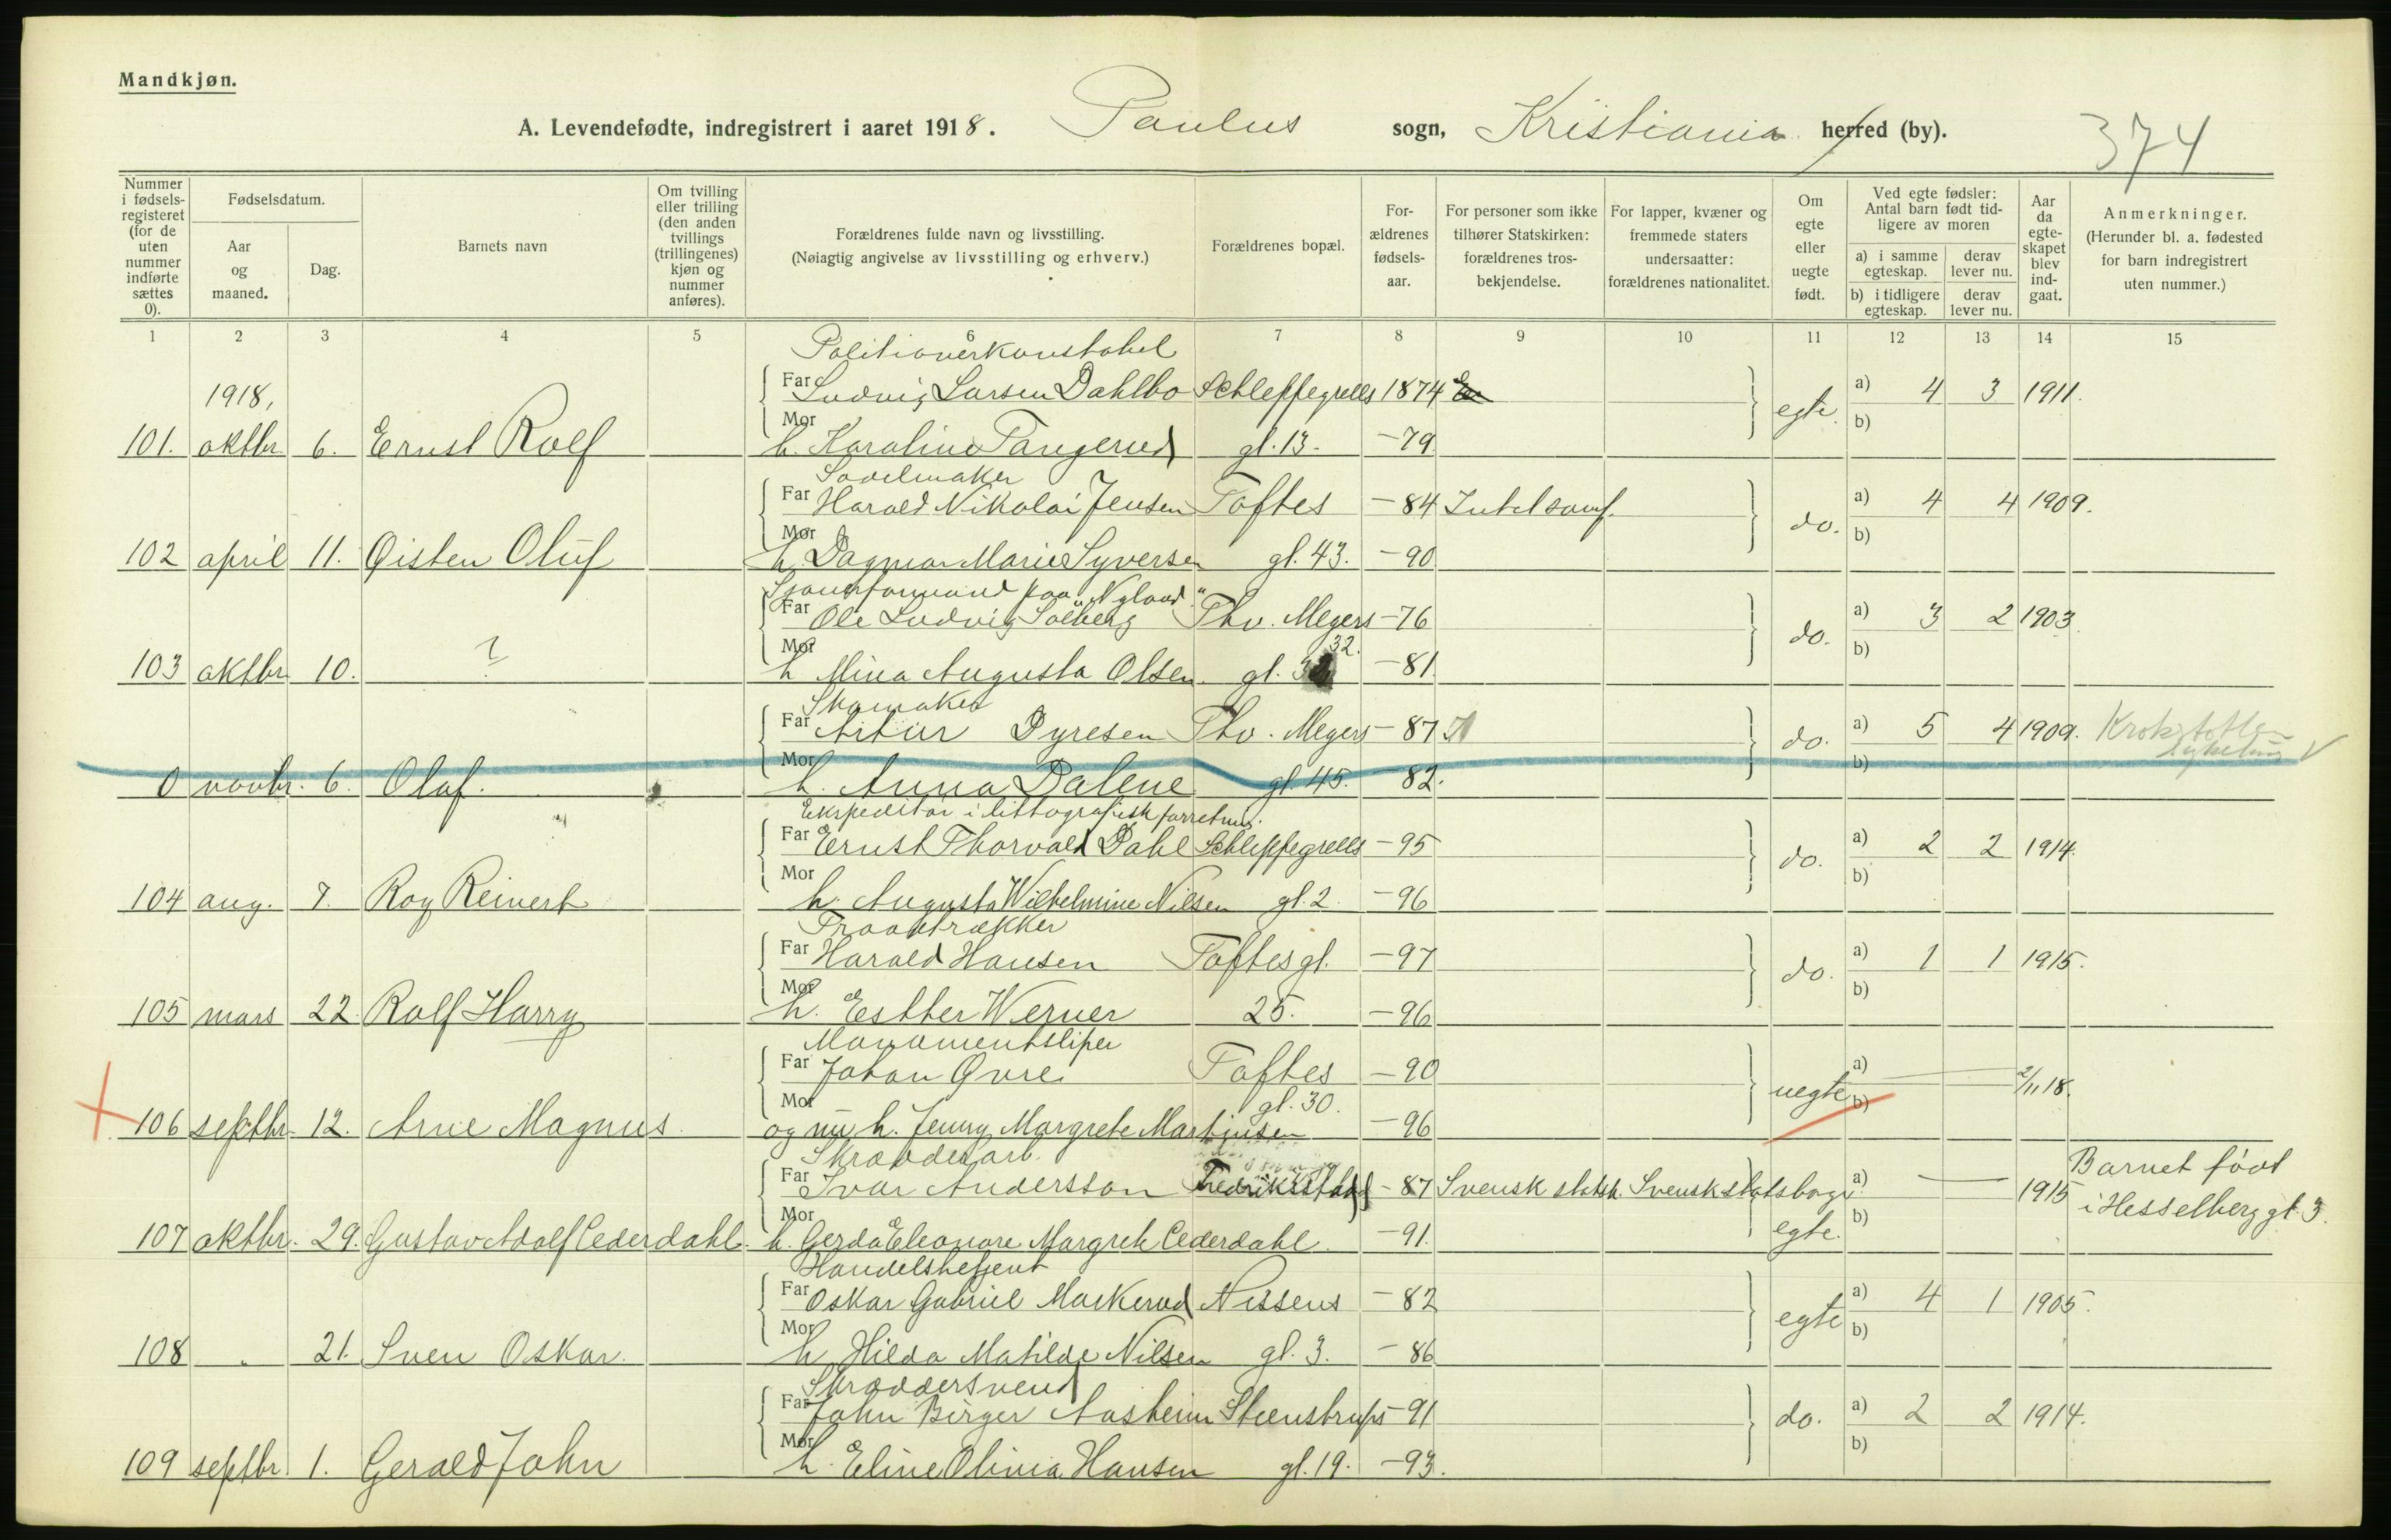 Mandkjøn.
A. Levendefødte, indregistrert i aaret 1918. Paulus sogn, Kristiania herred (by). 374
Nummer i fødsels-registeret (for de uten nummer indførte sættes 0).
Fødselsdatum.
Aar og maaned.
Dag.
Barnets navn
Om tvilling eller trilling (den anden tvillings (trillingenes) kjøn og nummer anføres).
Forældrenes fulde navn og livsstilling.
(Nøiagtig angivelse av livsstilling og erhverv.)
Forældrenes bopæl.
For-ældrenes fødsels-aar.
For personer som ikke tilhører Statskirken: forældrenes tros-bekjendelse.
For lapper, kvæner og fremmede staters undersaatter: forældrenes nationalitet.
Om egte eller uegte født.
Ved egte fødsler: Antal barn født tid-ligere av moren
a) i samme egteskap. derav lever nu.
b) i tidligere egteskap. derav lever nu.
Aar da egte-skapet blev ind-gaat.
Anmerkninger.
(Herunder bl. a. fødested for barn indregistrert uten nummer.)
1 2 3 4 5 6 7 8 9 10 11 12 13 14 15
Politioverkonstabel
1918, Far Ludvig Larsen Dahlbo Schleppegrells 1874 a) 4 3 1911.
101. oktbr. 6. Ernst Rolf Mor h. Karoline Tangerud gl. 13. -79. egte. b)
Sadelmaker
Far Harald Nikolai Jensen Toftes -84 a) 4 4 1909.
102 april 11. Øisten Oluf Mor h. Dagmar Marie Syversen gl. 43. -90 do. b)
paa "Nyland"
Far Ole Ludvig Solberg Thv. Meyers -76 a) 3 2 1903
103 oktbr. 10. ? Mor h Mina Augusta Olsen gl. 32. -81. do. b)
Skomaker
Far Artur Dyresen Thv. Meyers -87 a) 5 4 1909.
0 novbr. 6. Olaf. Mor h. Anna Dalene gl. 45. 82. do. b)
Ekspeditør i littografisk forretning.
Far Ernst Thorvald Dahl Schleppegrells -95 a) 2 2 1914.
104 aug. 7. Roy Reinert Mor h. Augusta Wilhelmine Nilsen gl. 2. -96 do. b)
Traadtrækker
Far Harald Hansen Toftes gl. -97 a) 1 1 1915.
105 mars 22. Rolf Harry Mor h. Esther Werner 25. -96 do. b)
Monumentsliper
Far Johan Øvre Toftes -90 a) 2/11 18.
106 septbr. 12. Arne Magnus Mor og nu h. Jenny Margrete Martinsen gl. 30. -96 uegte b)
Skrædderarb.
Far Ivar Andersson Fredrikstad -87 Svensk statsk. Svensk statsborg. a) 1915 Barnet født i Hesselberg gt. 3.
107 oktbr. 29. Gustav Adolf Cederdahl. Mor h. Gerda Eleonore Margrete Cederdahl -91. egte. b)
Handelsbetjent
Far Oskar Gabriel Markerud Nissens -82 a) 4 1 1905.
108 " 21. Sven Oskar. Mor h Hilda Matilde Nilsen gl. 3. -86 egte b)
Skræddersvend
Far John Birger Aasheim Steenstrups -91 a) 2 2 1914.
109 septbr. 1. Gerald John Mor h. Eline Olivia Hansen gl. 19. -93. do. b)